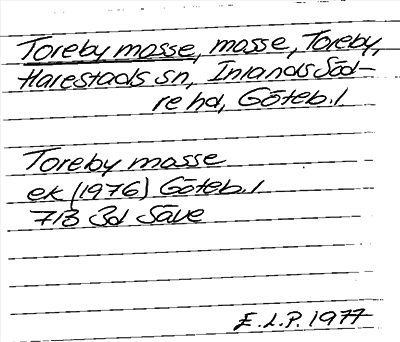 Toreby mosse, mosse, Toreby,
Harestads sn, Inlands Söd-
re hd, Göteb. l
Toreby mosse
ek (1976) Göteb. l
7B 3d Säve
E.L.P. 1977